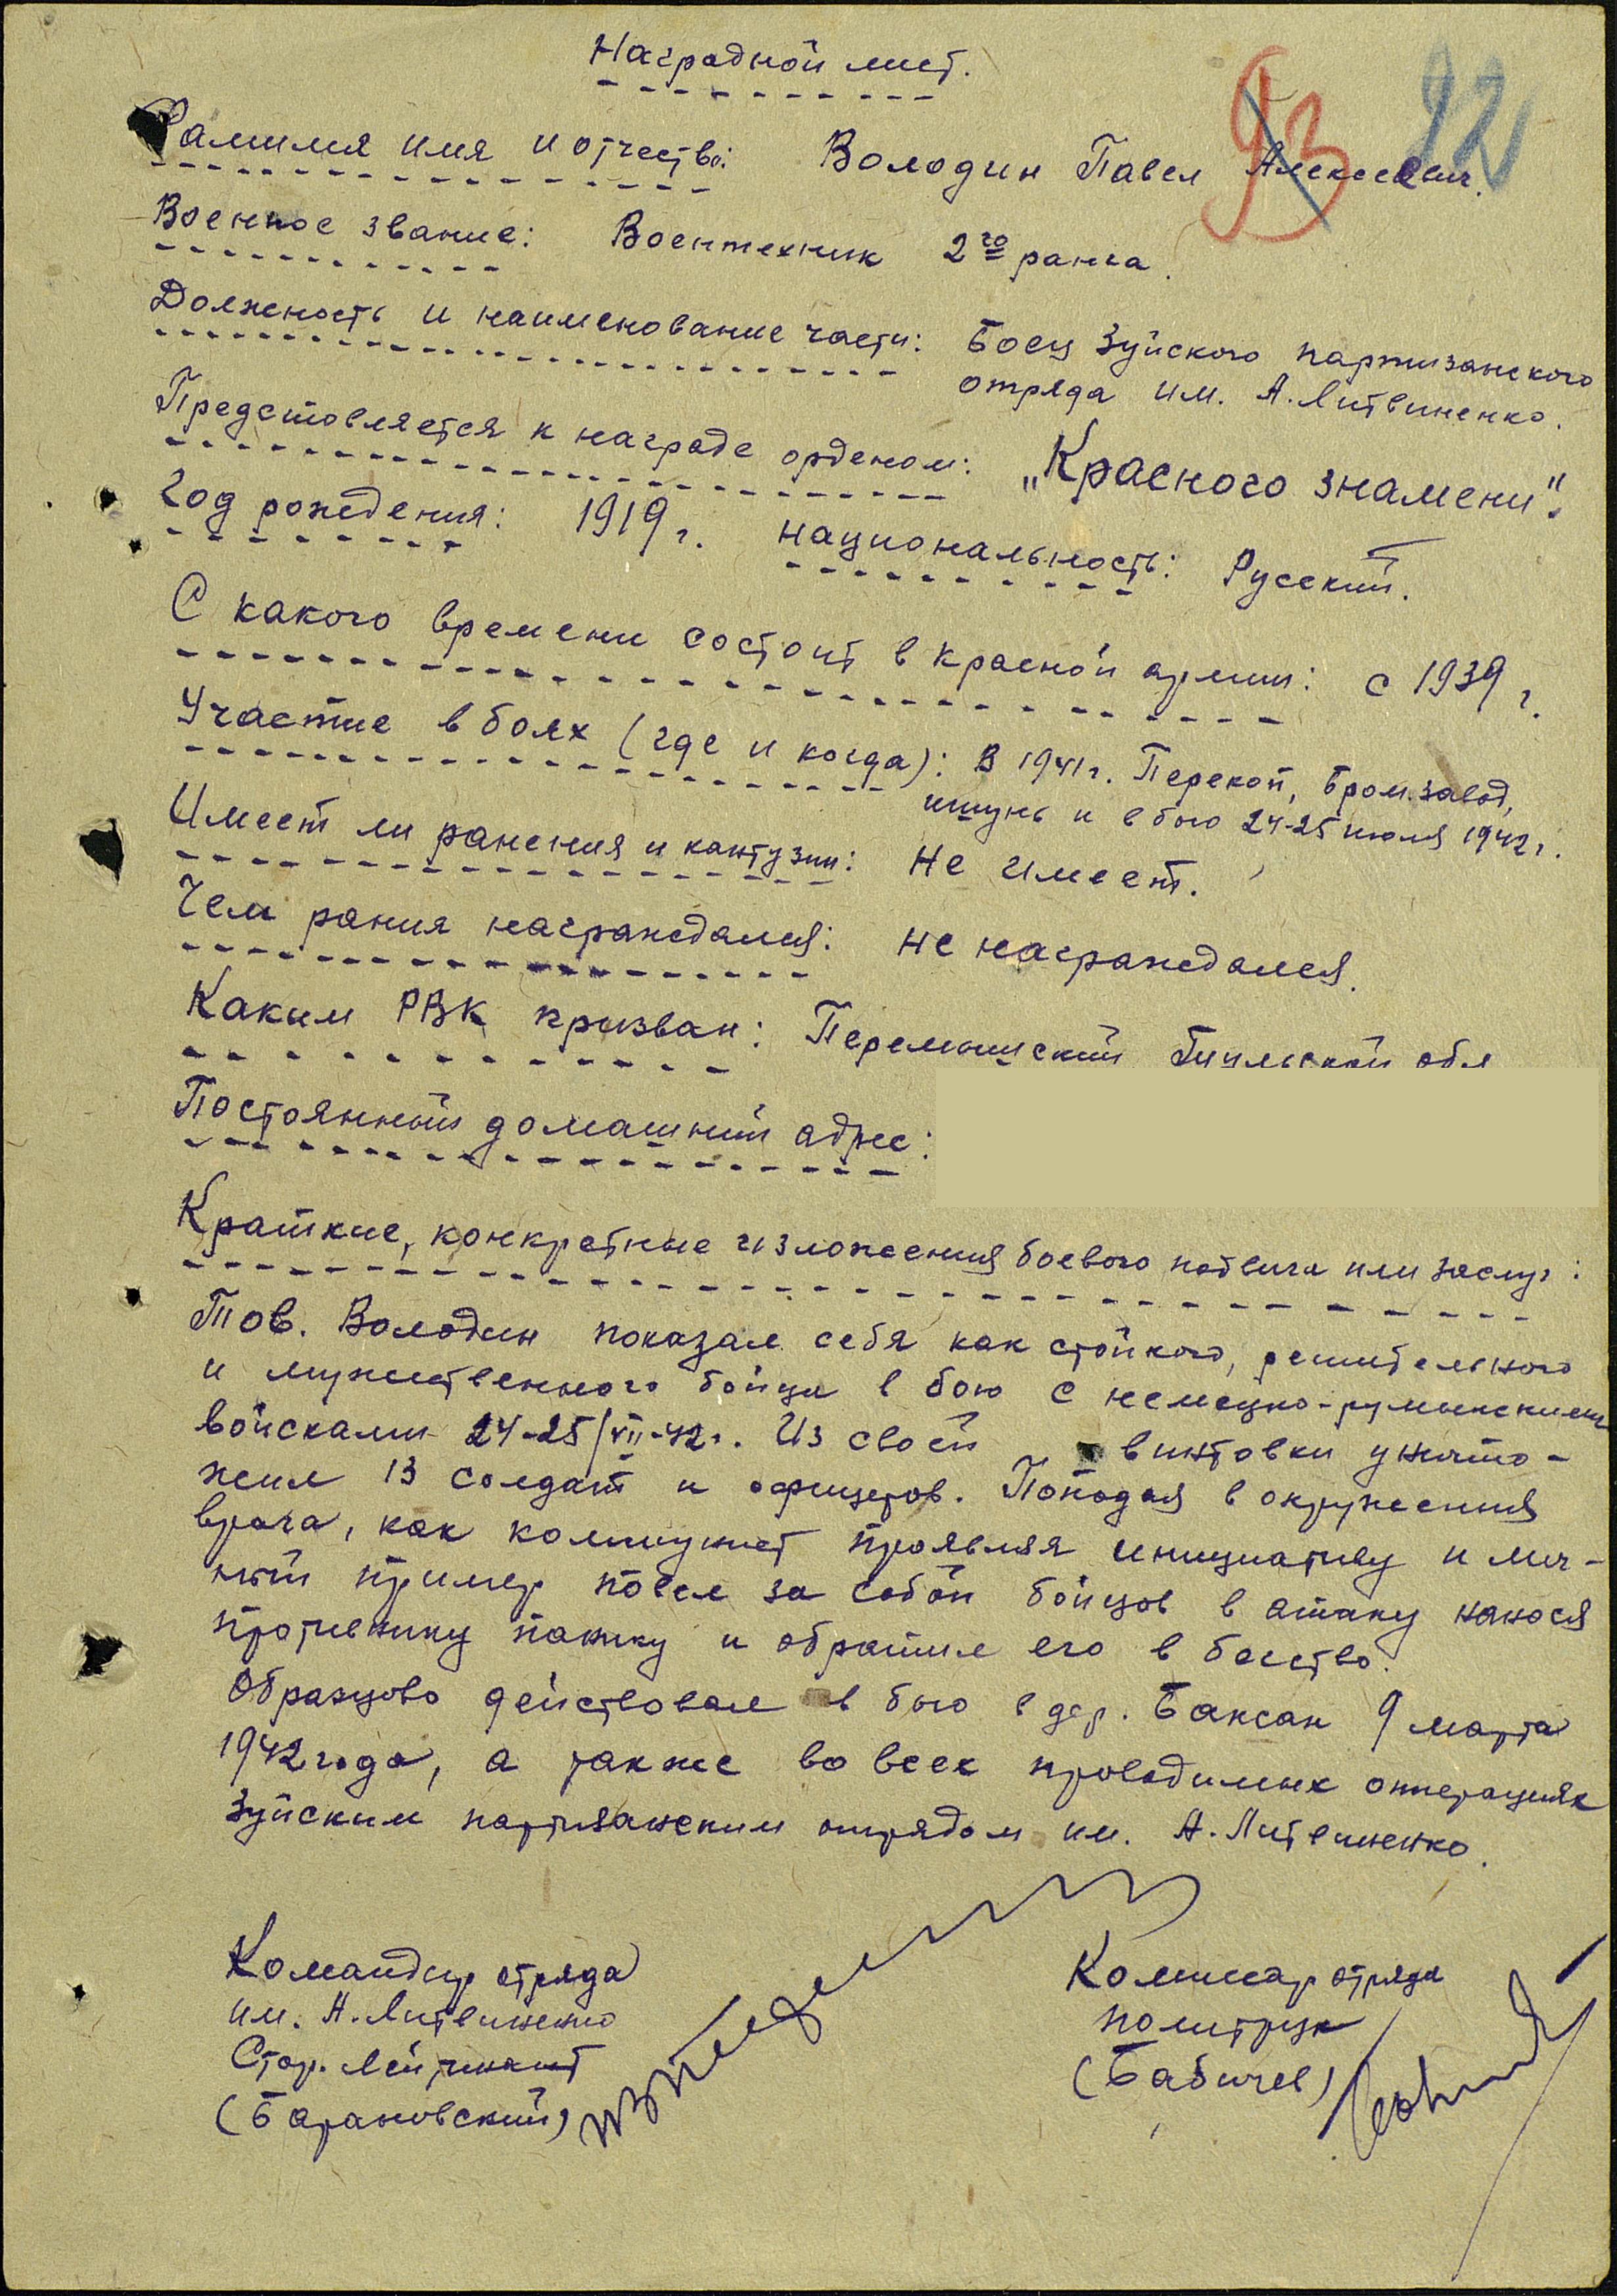 Наградной лист.
93 92
Фамилия имя и отчество: Володин Павел Алексеевич.
Военное звание: Воентехник 2го ранга.
Должность и наименование части: Боец Зуйского партизанского
отряда им. А. Литвиненко.
Предстовляется к награде орденом: „Красного знамени".
Год рождения: 1919 г. национальность: Русский.
С какого времени состоит в красной армии: с 1939 г.
Участие в боях (где и когда): В 1941 г. Перекоп, Бром.завод,
ишунь и в бою 24-25 июля 1942 г.
Имеет ли ранения и кантузии: Не имеет.
Чем рания награждался: не награждался.
Каким РВК призван: Перемышский Тульской обл
Постоянный домашний адрес:
Краткие, конкретные изложения боевого подвига или заслуг:
Тов. Володин показал себя как стойкого, решительного
и мужественного бойца в бою с немецко-румынскими
войсками 24-25/VII-42 г. Из своей винтовки уничто-
жил 13 солдат и офицеров. Попадая в окружения
врага, как коммунист проявляя инициативу и лич-
ный пример повел за собой бойцов в атаку нанося
противнику панику и обратил его в бегство.
Образцово действовал в бою в дер. Баксан 9 марта
1942 года, а также во всех проводимых операциях
Зуйским партизанским отрядом им. А. Литвиненко.
Командир отряда
им. А. Литвиненко
Стар. Лейтинант
(Барановский)
Комиссар отряда
политрук
(Бабичев)